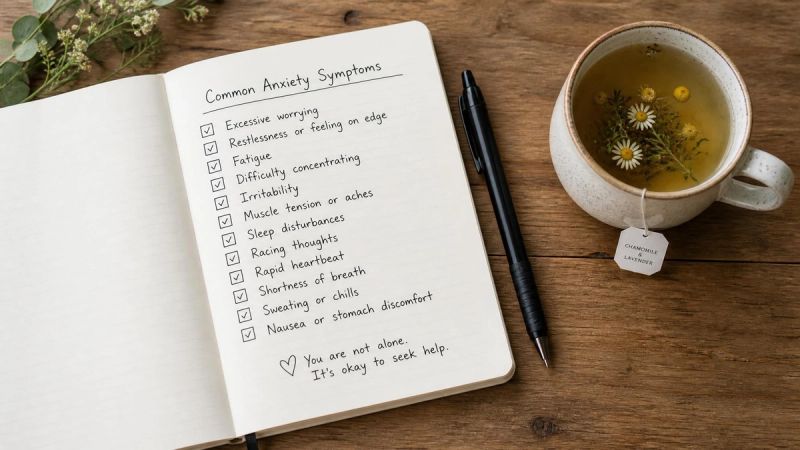 Common Anxiety Symptoms
Excessive worrying
Restlessness or feeling on edge
Fatigue
Difficulty concentrating
Irritability
Muscle tension or aches
Sleep disturbances
Racing thoughts
Rapid heartbeat
Shortness of breath
Sweating or chills
Nausea or stomach discomfort
You are not alone.
It's okay to seek help.
CHAMOMILE
&
LAVENDER